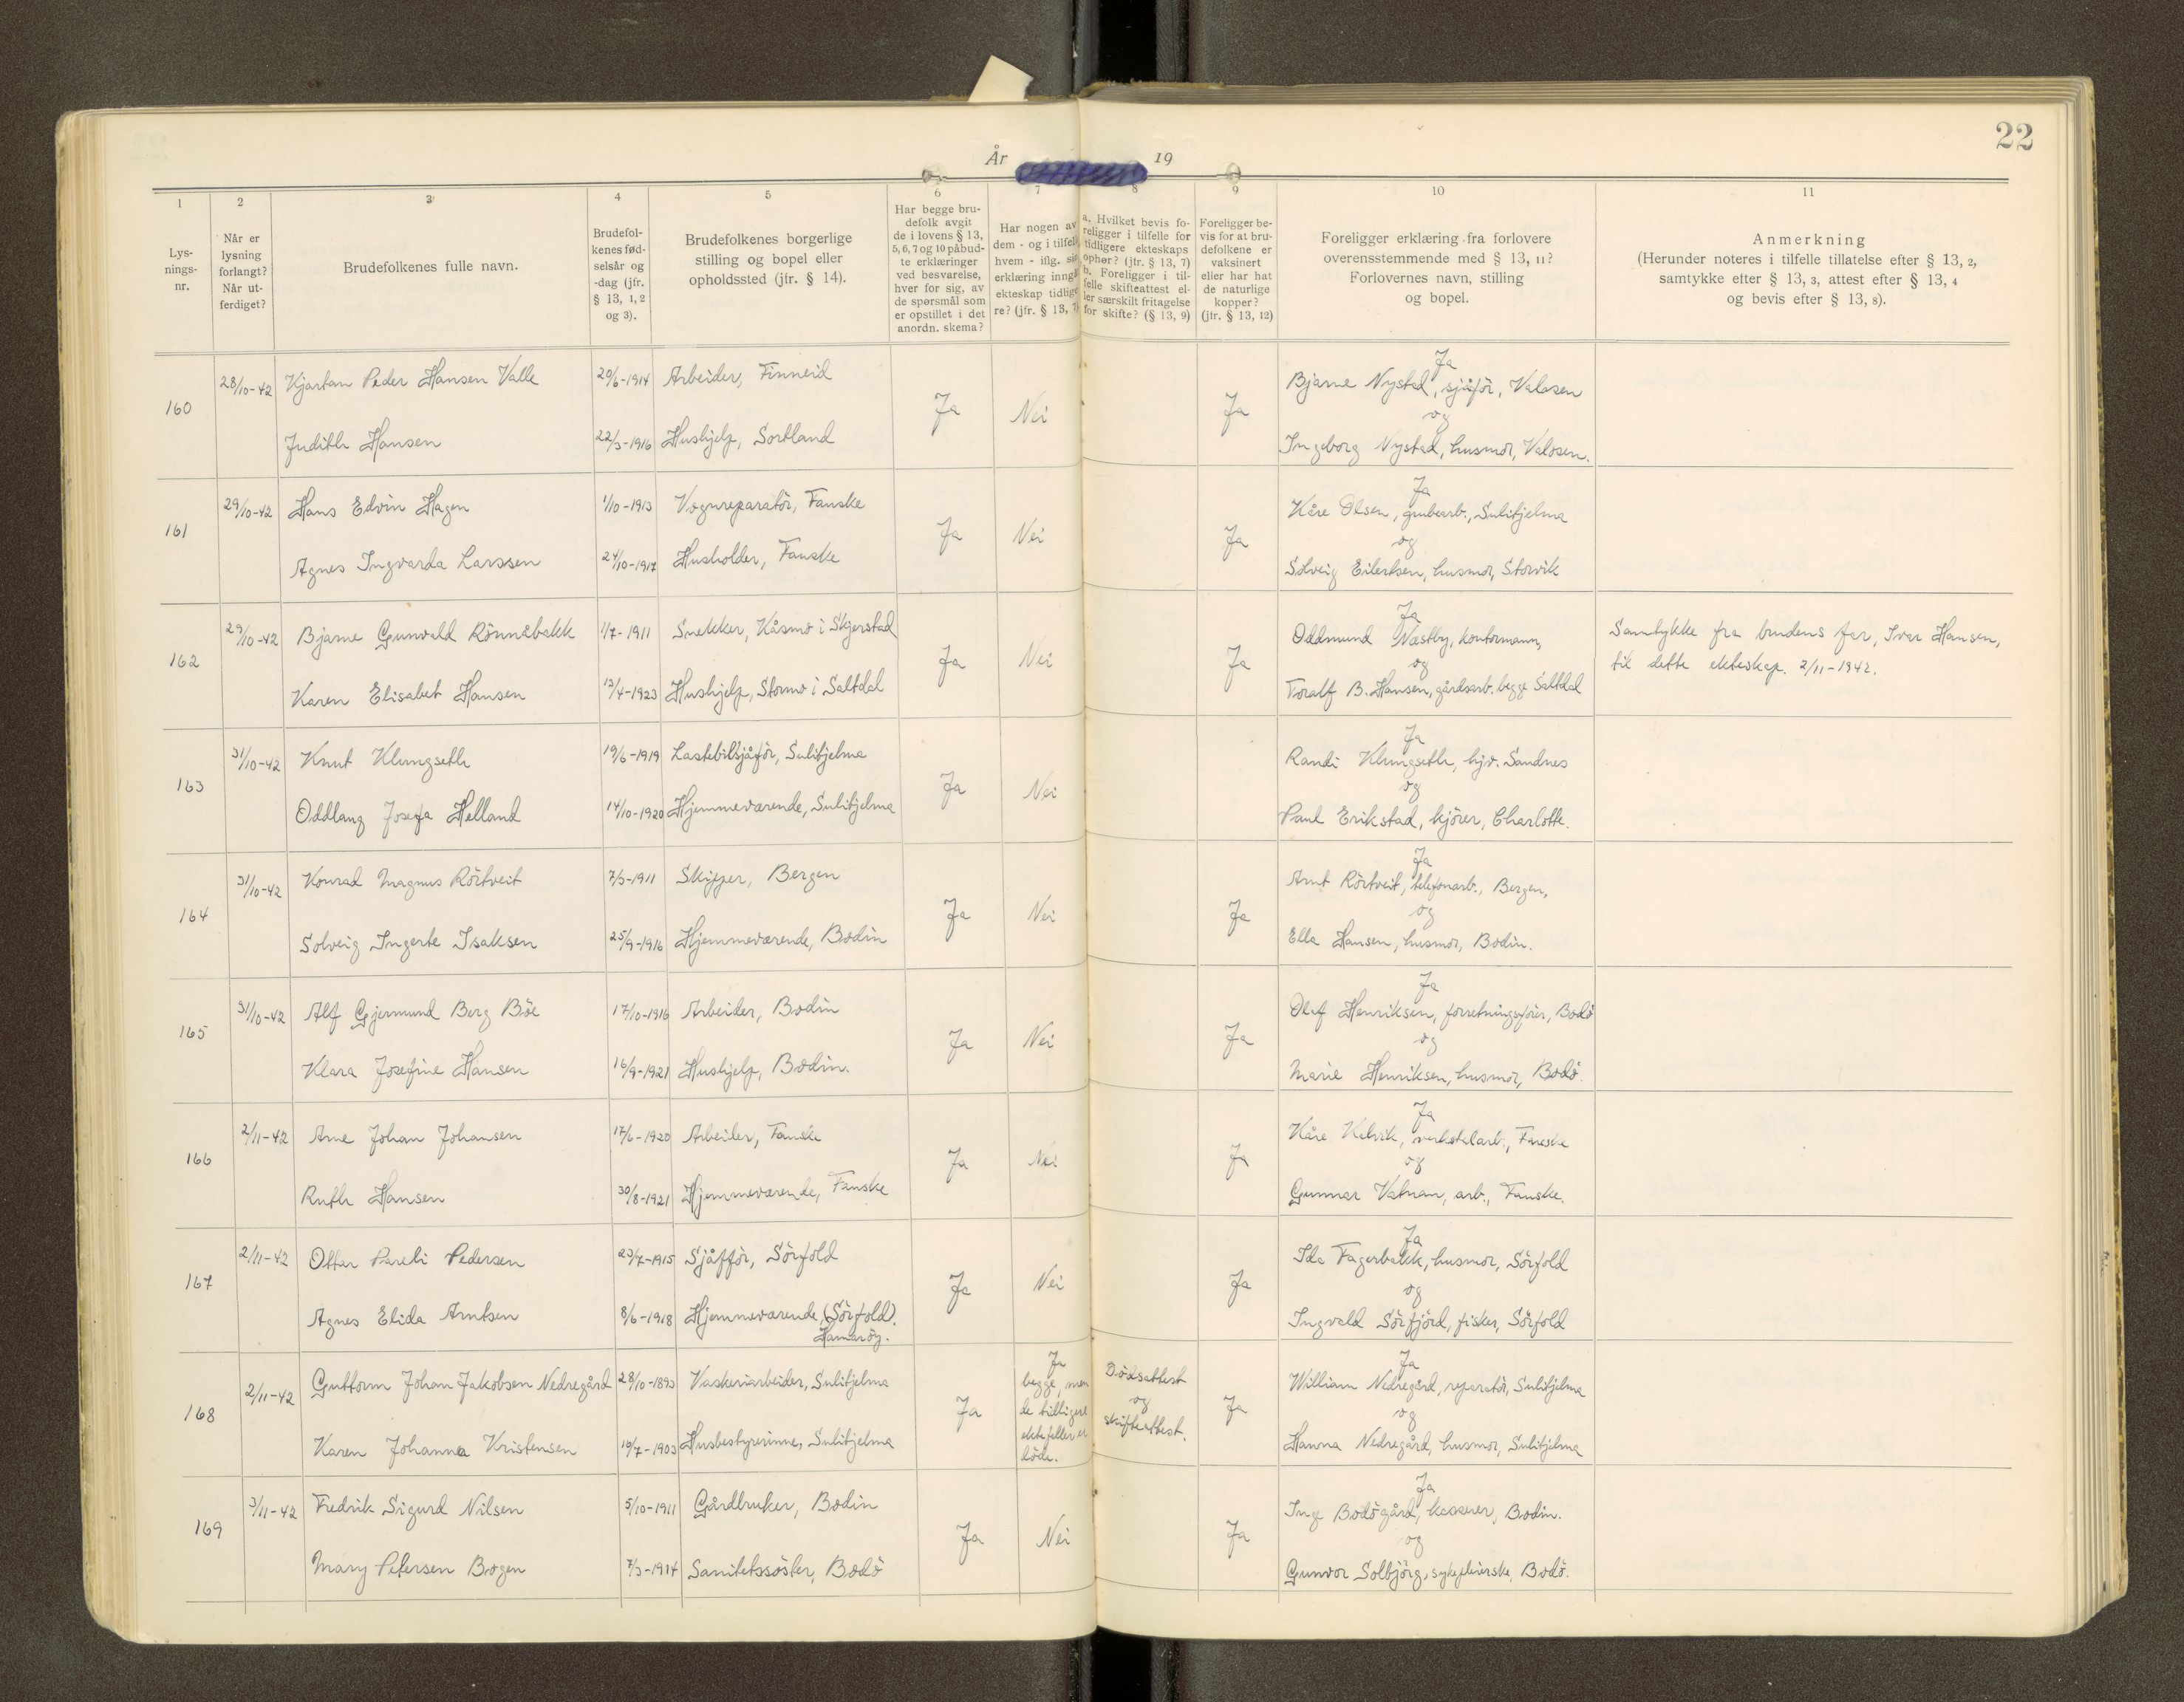 22
År 19
1 2 3 4 5 6 7 8 9 10 11
Lysnings-nr.
Når er lysning forlangt? Når utferdiget?
Brudefolkenes fulle navn.
Brudefolkenes fødselsår og -dag (jfr. § 13, 1, 2 og 3).
Brudefolkenes borgerlige stilling og bopel eller opholdssted (jfr. § 14).
Har begge brudefolk avgit de i lovens § 13, 5, 6, 7 og 10 påbudte erklæringer ved besvarelse, hver for sig, av de spørsmål som er opstillet i det anordn. skema?
Har nogen av dem - og i tilfelle hvem - iflg. sin erklæring inngå ekteskap tidligere? (jfr. § 13, 7)
a. Hvilket bevis foreligger i tilfelle for tidligere ekteskaps ophør? (jfr. § 13, 7)
b. Foreligger i tilfelle skifteattest eller særskilt fritagelse for skifte? (§ 13, 9)
Foreligger bevis for at brudefolkene er vaksinert eller har hat de naturlige kopper? (jfr. § 13, 12)
Foreligger erklæring fra forlovere overensstemmende med § 13, 11? Forlovernes navn, stilling og bopel.
Anmerkning
(Herunder noteres i tilfelle tillatelse efter § 13, 2, samtykke efter § 13, 3, attest efter § 13, 4 og bevis efter § 13, 8).
160 28/10-42 Kjartan Peder Hansen Valle 20/6-1914 Arbeider, Finneid
Judith Hansen 22/3-1916 Hushjelp, Sortland
Ja Nei Ja
Ja
Bjarne Nystad, sjåfør, Valosen
og
Ingeborg Nystad, husmor, Valosen.
161 29/10-42 Hans Edvin Hagen 1/10-1913 Vognreparatör, Fauske
Agnes Ingvarda Larssen 24/10-1917 Husholder, Fauske
Ja Nei Ja
Ja
Kåre Olsen, grubearb., Sulitjelma
og
Solveig Eilertsen, husmor, Storvik
162 29/10-42 Bjarne Gunvald Rönnåbakk 1/7-1911 Snekker, Kåsmo i Skjerstad
Karen Elisabet Hansen 13/4-1923 Hushjelp, Stormo i Saltdal
Ja Nei Ja
Ja
Oddmund Næstby, kontormann,
og
Toralf B. Hansen, gårdsarb. begge Saltdal
Samtykke fra brudens far, Ivar Hansen,
til dette ekteskap. 2/11-1942.
163 31/10-42 Knut Klungseth 19/6-1919 Lastebilsjåför, Sulitjelma
Oddlaug Josefa Helland 14/10-1920 Hjemmeværende, Sulitjelma
Ja Nei
Ja
Randi Klungseth, hjv. Sandnes
og
Paul Erikstad, kjörer, Charlotte.
164 31/10-42 Konrad Magnus Rörtveit 7/3-1911 Skipper, Bergen
Solveig Ingerte Isaksen 25/9-1916 Hjemmeværende, Bodin
Ja Nei Ja
Ja
Arnt Rörtveit, telefonarb., Bergen,
og
Ella Hansen, husmor, Bodin.
165 31/10-42 Alf Gjermund Berg Böe 17/10-1916 Arbeider, Bodin
Klara Josefine Hansen 16/9-1921 Hushjelp, Bodin.
Ja Nei Ja
Ja
Olaf Henriksen, forretningsförer, Bodö
og
Marie Henriksen, husmor, Bodö.
166 2/11-42 Arne Johan Johansen 17/6-1920 Arbeider, Fauske
Ruth Hansen 30/8-1921 Hjemmeværende, Fauske
Ja Nei Ja
Ja
Kåre Kelvik, verkstedarb., Fauske
og
Gunnar Vatnan, arb., Fauske.
167 2/11-42 Ottar Pareli Pedersen 23/7-1915 Sjåfför, Sörfold
Agnes Elida Arntsen 8/6-1918 Hjemmeværende (Sörfold).
Hamaröy.
Ja Nei Ja
Ja
Ida Fagerbakk, husmor, Sörfold
og
Ingvald Sörfjord, fisker, Sörfold
168 2/11-42 Guttorm Johan Jakobsen Nedregård 28/10-1893 Vaskeriarbeider, Sulitjelma
Karen Johanna Kristensen 19/7-1903 Husbestyrerinne, Sulitjelma
Ja
Ja
begge, men
de tidligere
ektefeller er
döde.
Dödsattest
og
skifteattest.
Ja
Ja
William Nedregård, reparatör, Sulitjelma
og
Hanna Nedregård, husmor, Sulitjelma
169 3/11-42 Fredrik Sigurd Nilsen 5/10-1911 Gårdbruker, Bodin
Mary Petersen Bogen 7/3-1914 Sanitetssöster, Bodö
Ja Nei Ja
Ja
Inge Bodögård, kasserer, Bodin.
og
Gunvor Solbjörg, sykepleierske, Bodö.